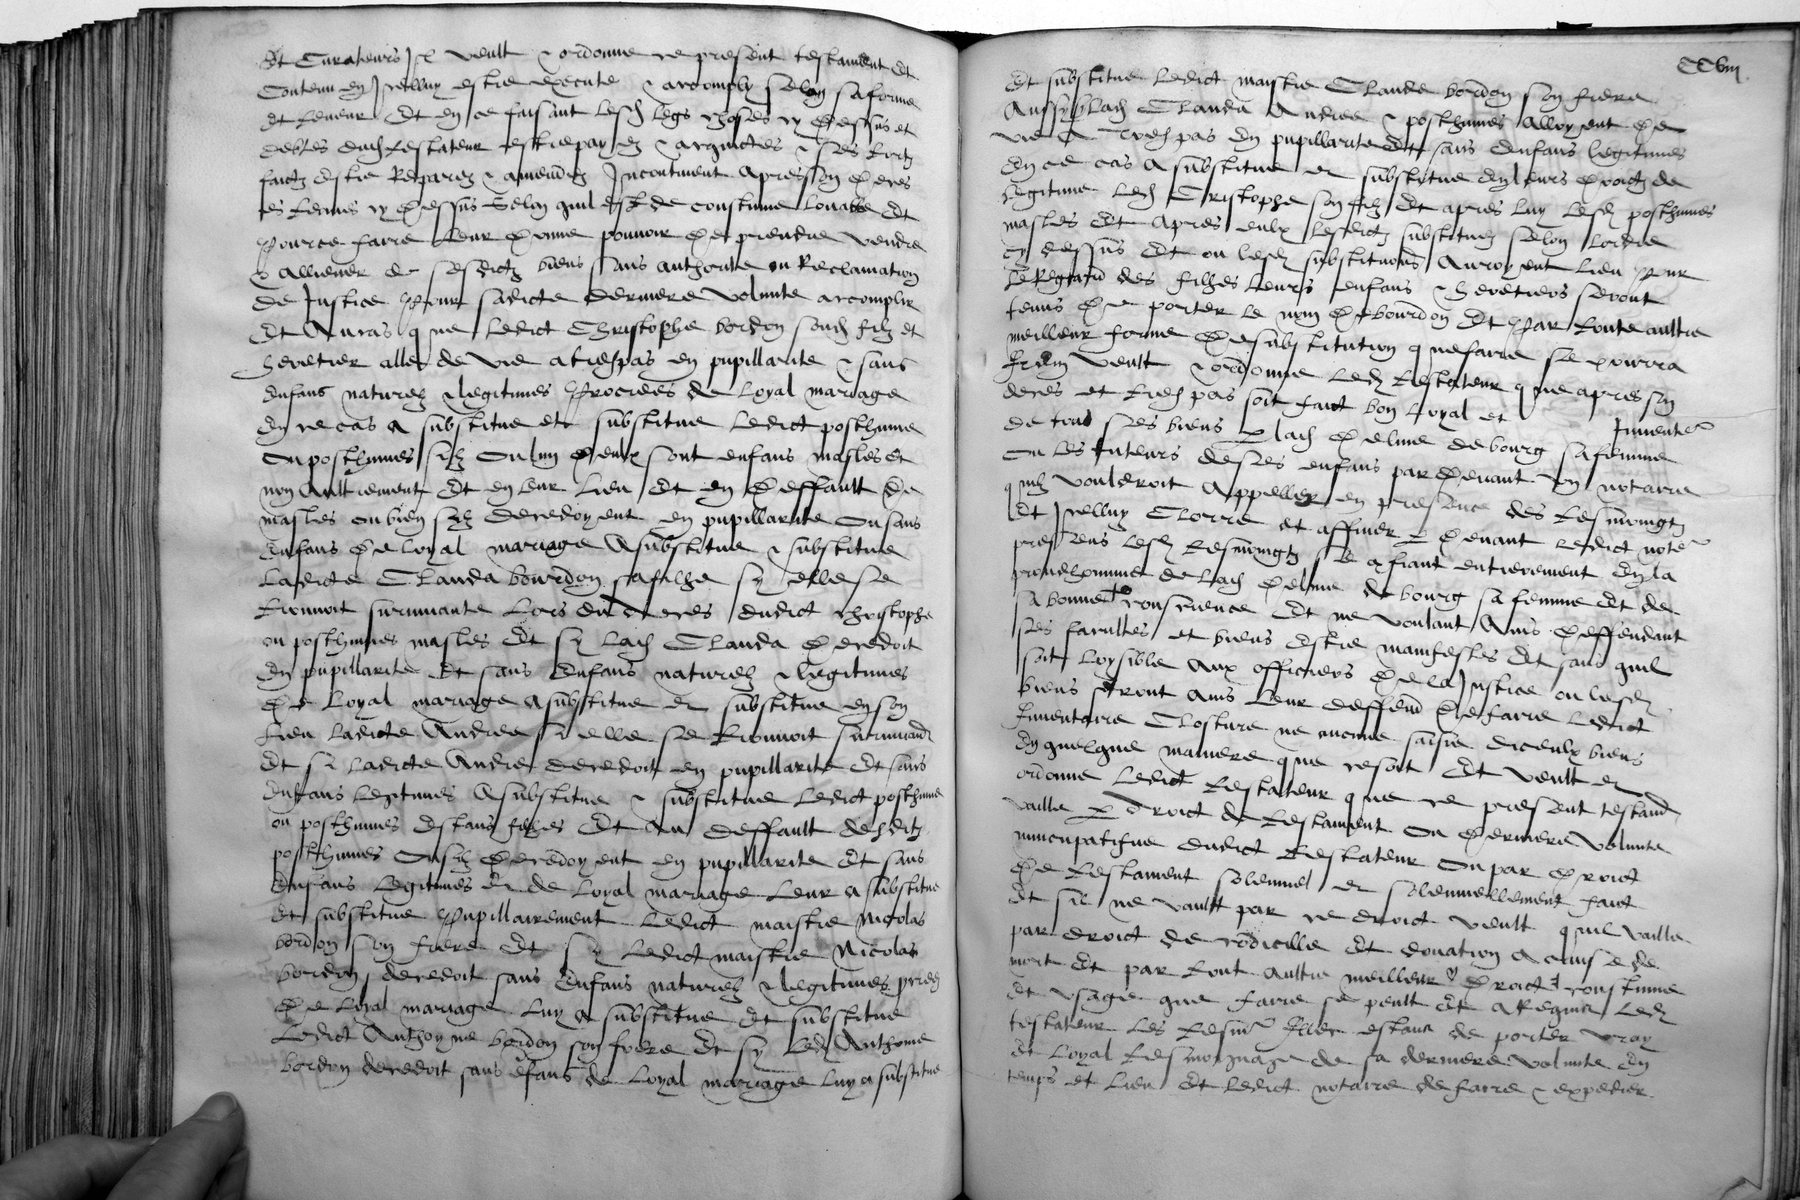 Et Curateurs Il veult & ordonne ce present testament et
Contenu en Icelluy estre execute & accomply selon sa forme
et teneur Et en ce faisant lesd legs choses cy dessus et
debtes dud testateur estre payez & acquictes & ses tortz
faictz estre reparez & amendez Incontinent apres son deces
es termes cy dessus selon quil est de coustume louable Et
Pource faire leur donne pouvoir de prendre vendre
& alliener de sesdictz biens sans authorite ou reclamation
de Justice Pour sadicte derniere volunte accomplir
Et Au cas que ledict Christophe bordon sond filz et
heretier alle de vie a trespas en pupillarite & sans
enfans naturelz & legitimes Procrees de loyal mariage
En ce cas a substitue et substitue ledict posthume
ou posthumes silz ou lun deulx sont enfans masles Et
non Aultrement Et en leur lieu Et en deffault de
masles ou bien silz decedoyent en pupillarite ou sans
enfans de loyal mariage A substitue & substitue
Ladicte Clauda bourdon sa filhe sy elle se
trouvoit survivante lors du deces dudict christophe
ou posthumes masles Et sy lad Clauda decedoit
En pupillarite Et sans enfans naturelz & legitimes
de loyal mariage a substitue et substitue en son
lieu ladicte Andree sy elle se trouvoit survivant
Et sy ladicte Andree decedoit en pupillarite Et sans
enfans legitimes A substitue & substitue ledict posthume
ou posthumes estans filhes Et au deffault desdictz
posthumes ou silz decedoyent en pupillarite Et sans
enfans legitimes et de loyal mariage leur a substitue
et substitue Pupillairement ledict maistre Nicolas
bordon son frere Et sy ledict maistre Nicolas
bordon decedoit sans enfans naturelz & legitimes
de loyal mariage luy a substitue et substitue
ledict Anthoyne bordon son frere Et sy led Anthoyne
bordon decedoit sans efans de loyal mariage luy a substitue
CCviii
Et substitue ledict maistre Claude bordon son frere
Aussy sy lad Clauda Andree & posthumes alloyent de
vie a trespas en pupillarite et sans enfans legitimes
En ce cas a substitue et substitue en leurs droictz de
legitime led Cristophe son filz Et apres luy lesd posthumes
masles Et apres eulx lesdictz substituez selon lordre
cy dessus Et ou lesd substitutions auroyent lieu Pour
le regard des filhes leurs enfans & heretiers seront
tenus de porter le nom de bourdon Et Par toute aultre
meilleur forme de substitution que faire se pourra
Item veult & ordonne led testateur que apres son
deces et trespas soit faict bon loyal et Inventere
de tous ses biens p lad delme de bourg sa femme
ou les tuteurs de ses enfans par devant un notaire
quilz vouldroit appeller en presence des tesmoingtz
Et Icelluy Clorre et affiner p devant ledict note
presens lesd tesmoingtz se confiant entierement en la
preudhommie de lad delme de bourg sa femme Et de
sa bonne conscience Et ne voulant Ains deffendant
ses facultes et biens estre manifestes Et sans quil
soit loysible aux officiers de la Justice ou lesd
biens seront Ains leur deffend de faire ledict
Inventaire Closture ne aucune saisie diceulx biens
En quelque maniere que ce soit Et veult et
ordonne ledict testateur que ce present testamt
vaille p droict de testament ou derniere volunte
nuncupatifve dudict testateur ou par droict
de testament solemnel et solemnellement faict
Et sil ne vault par ce droict veult quil vaille
par droict de codicille Et donation a cause de
mort Et par tout aultre meilleur droict coustume
Et usage que faire se peult Et a requis led
testateur les tesmoings Illec estans de porter vray
et loyal tesmoignage de sa derniere volunte En
temps et lieu Et ledict notaire de faire & expedier